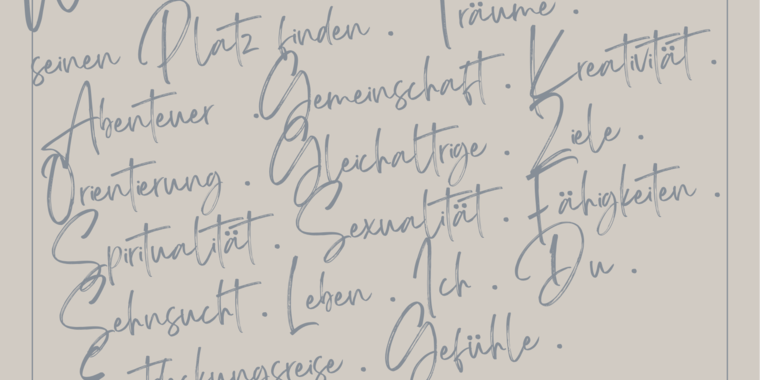 seinen Platz finden . Träume .
Abenteuer . Gemeinschaft . Kreativität .
Orientierung . Gleichaltrige . Ziele .
Spiritualität . Sexualität . Fähigkeiten .
Sehnsucht . Leben . Ich . Du .
Entdeckungsreise . Gefühle .